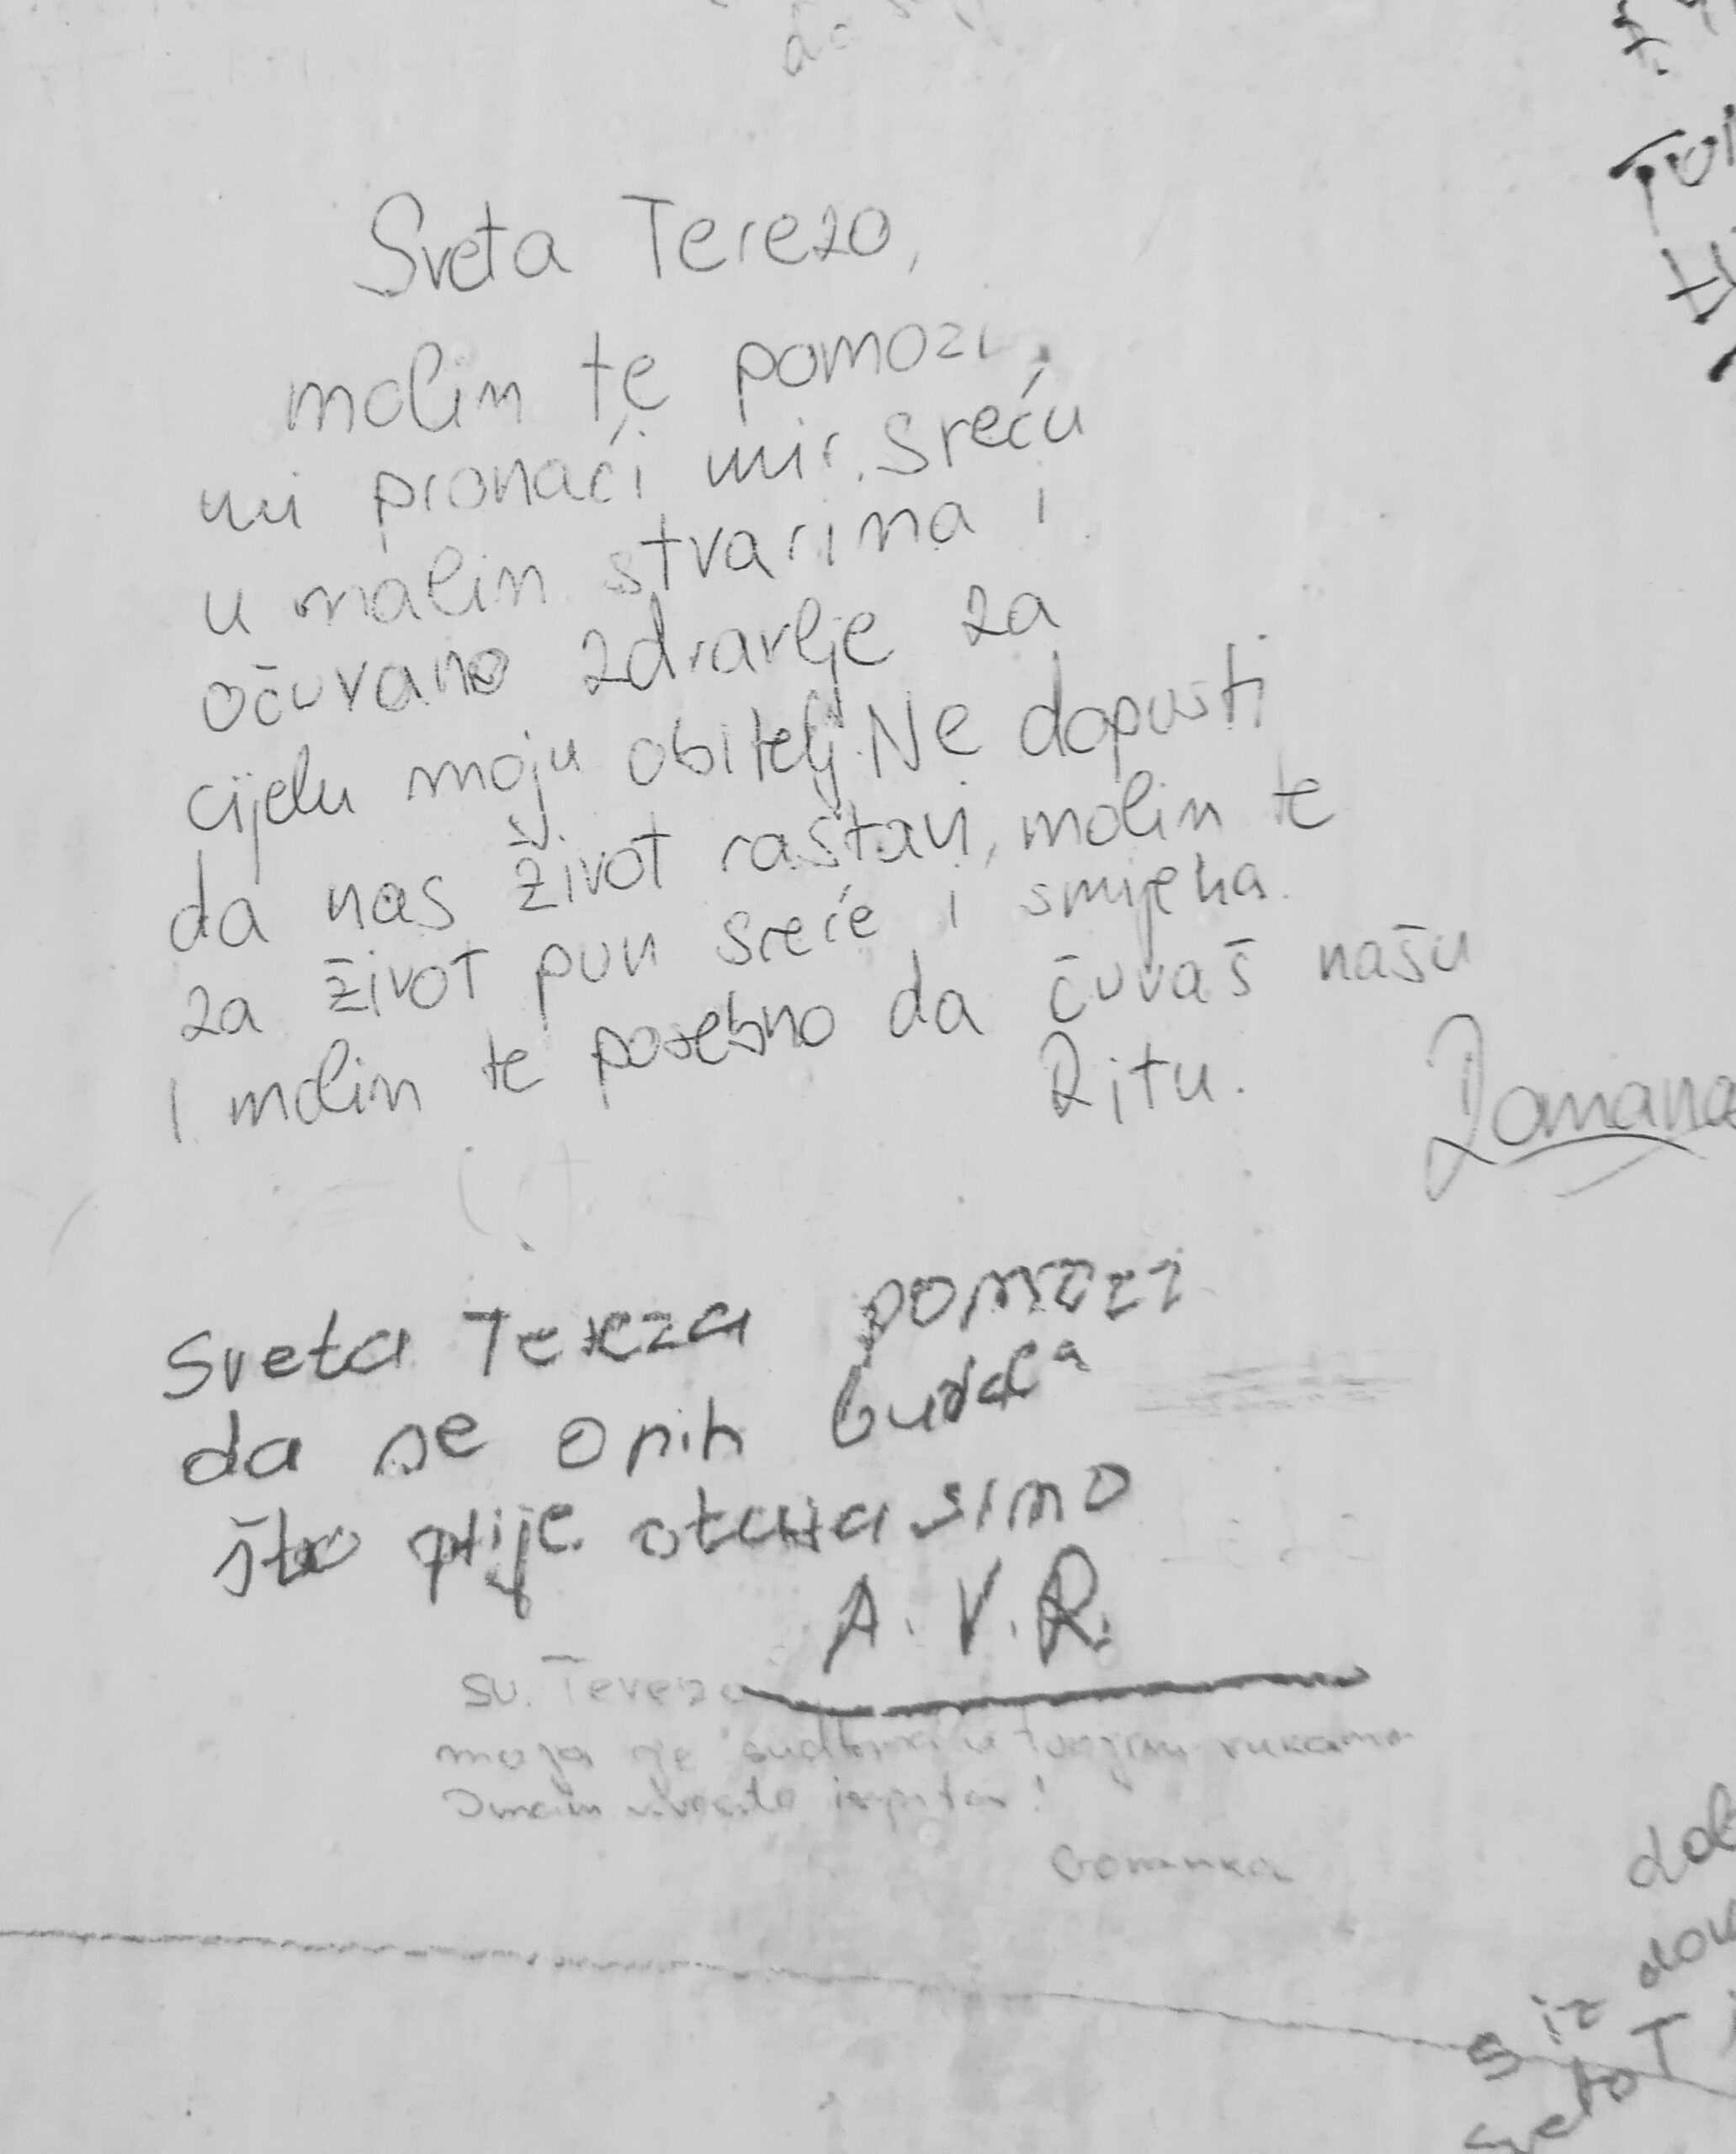 Sveta Terezo,
molin te pomozi
mi pronaći mir, sreću
u malin stvarima i
očuvano zdravlje za
cijelu moju obitelj. Ne dopusti
da nas život rastavi, molin te
za život pun sreće i smijeha.
I molin te posebno da čuvaš našu
Ritu.
Romana
Sveta Tereza pomozi
da se onih budala
što prije otarasimo
A. V. R.
Sv. Terezo
moja je sudbina u tvojim rukama
iz